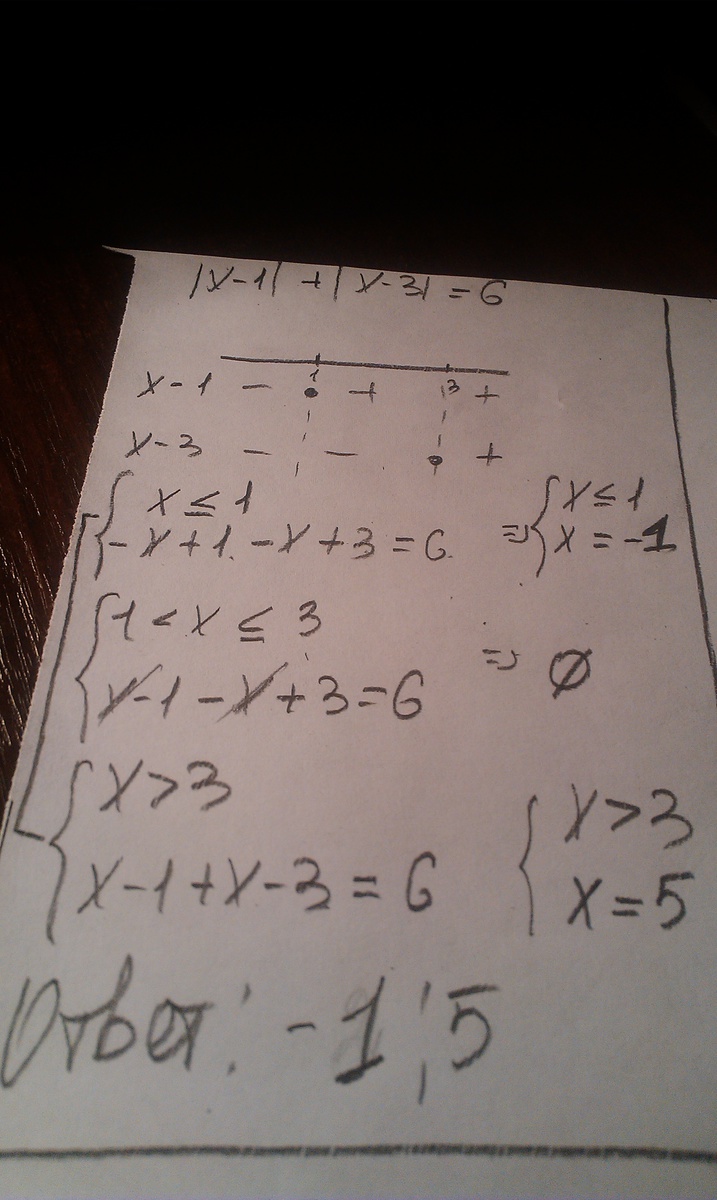 |x-1| + |x-3| = 6
1 3
x-1 - + +
x-3 - - +
{ x ≤ 1
-x+1-x+3=6 => { x ≤ 1
x = -1
{ 1 < x ≤ 3
x-1-x+3=6 => ∅
{ x>3
x-1+x-3=6 { x>3
x=5
Ответ: -1; 5